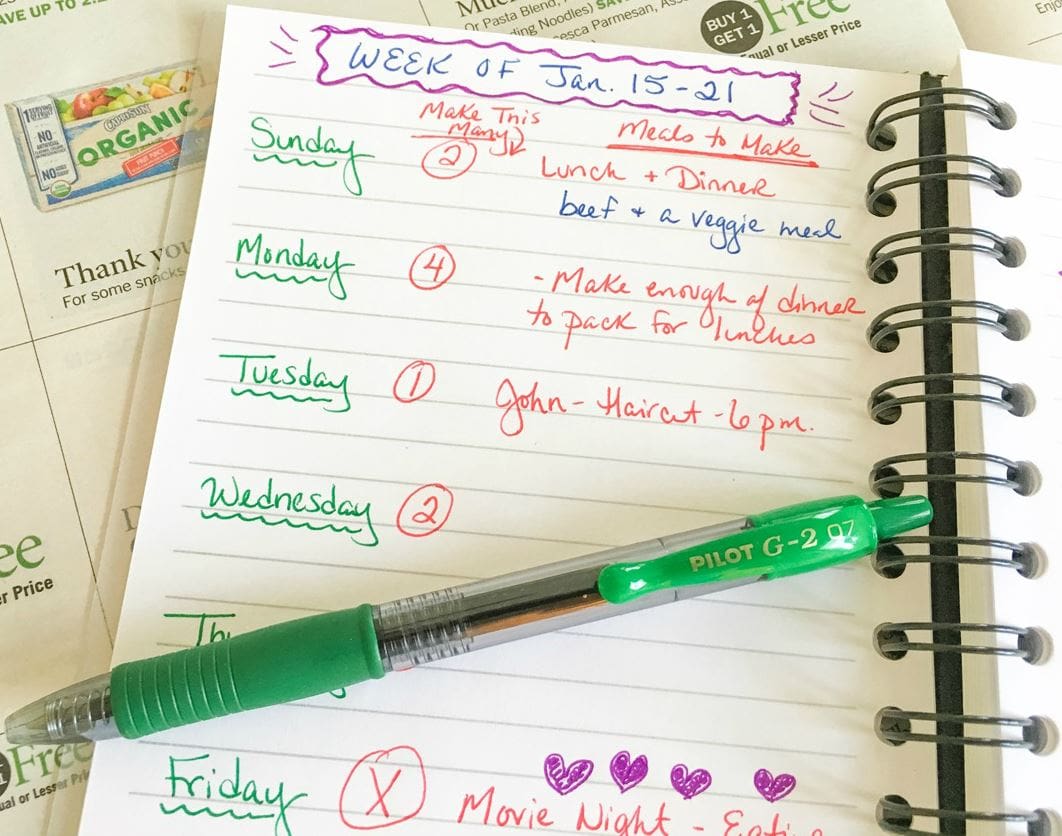 AVE UP TO 2.2
Or Pasta Blend,
ding Noodles) SAV
esca Parmesan, Ass
BUY 1
GET 1
Free
qual or Lesser Price
Enjo
1 SERVING
NO
NO
ORGANIC
FRUIT PUNCH
Thank you
For some snacks
ee
er Price
Free
ual or Lesser Pri
WEEK OF Jan. 15-21
Make This
Many
Meals to Make
Sunday 2 Lunch + Dinner
beef + a veggie meal
Monday 4 - Make enough of dinner
to pack for lunches
Tuesday 1 John - Haircut - 6 pm.
Wednesday 2
PILOT G-2 07
Th
Friday X Movie Night - Eatin